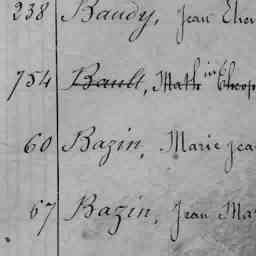 238 Baudy, Jean
754 Bault, Math in
60 Bazin, Marie Jea
67 Bazin, Jean Ma